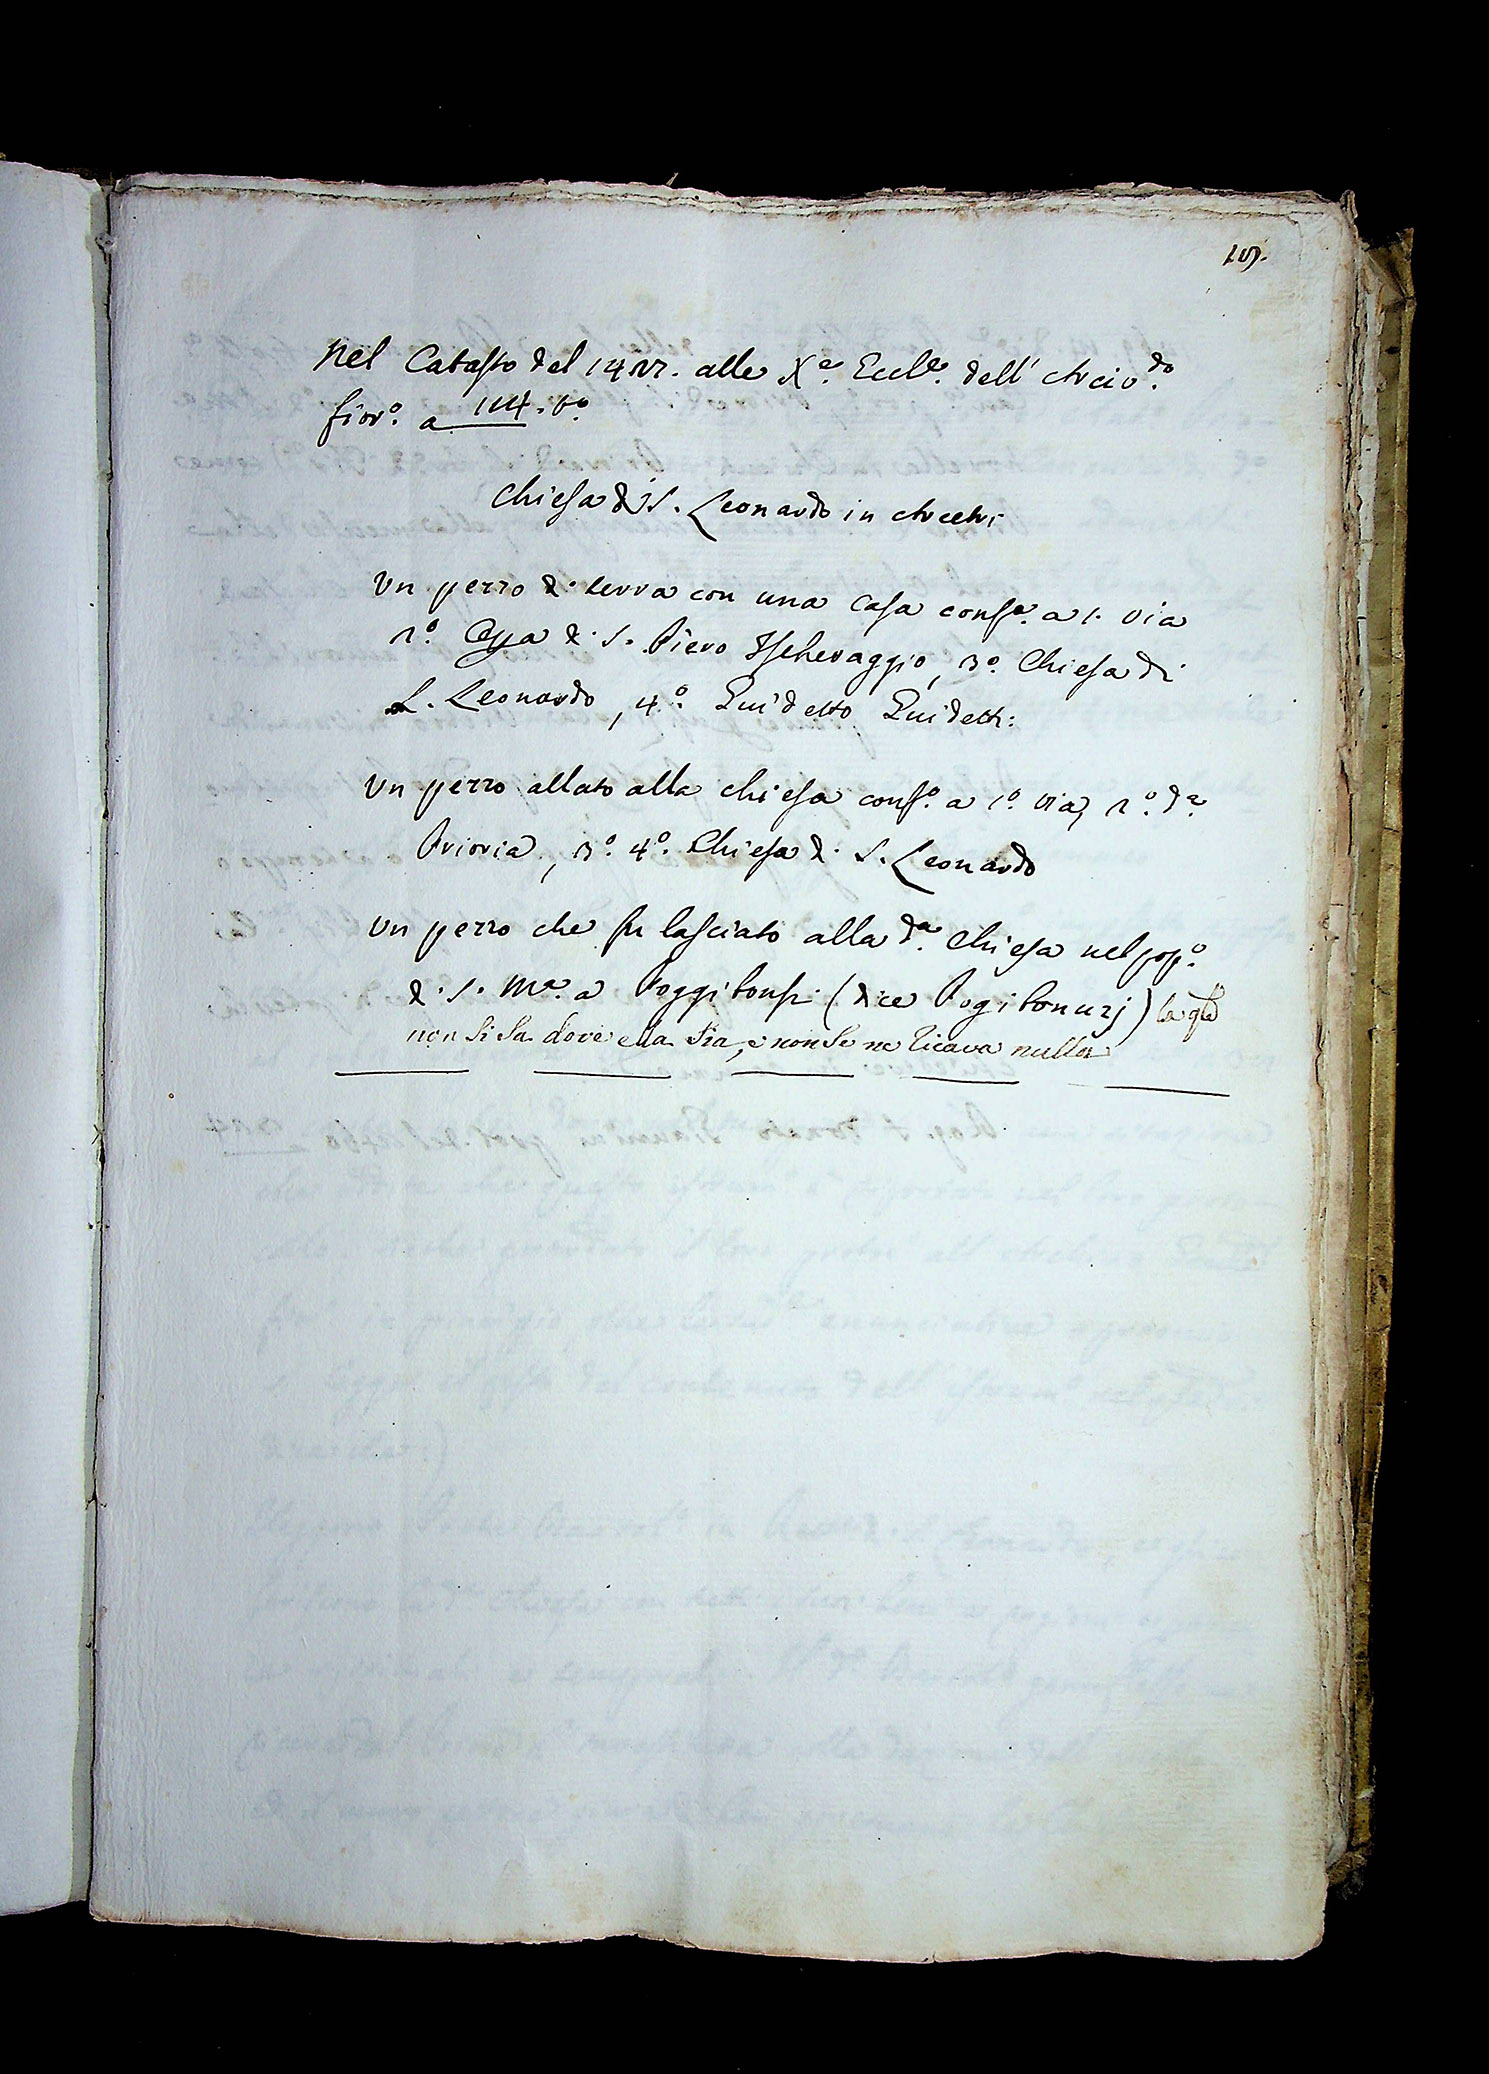 19.
Nel Catasto del 1427. alle Xe. Eccle. dell' Arciv.do
fior.o a 114. vo.
Chiesa di S. Leonardo in Arcetri
Un pezzo di terra con una casa conf.a a 1. via
2.o Casa di S. Piero Scheraggio, 3.o Chiesa di
S. Leonardo, 4.o Guidetto Guidetti:
Un pezzo allato alla chiesa conf.o a 1.o via, 2.o d.a
Prioria, 3.o 4.o Chiesa di S. Leonardo
Un pezzo che fu lasciato alla d.a Chiesa nel pop.o
di S. Ma. a Poggibonsi (dice Pogibonizj) la qle
non si sa dove ella sia, e non se ne ricava nulla